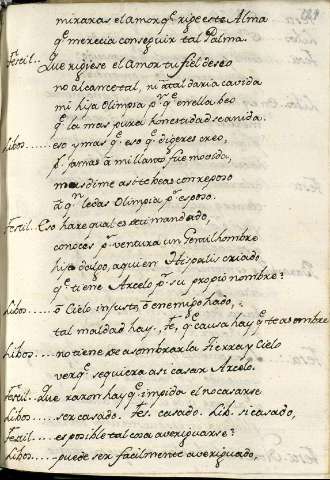 miraras el amor q̃ rige este Alma
q̃ merecia conseguir tal Palma.
Festil. Que rigiese el Amor tu fiel deseo
no alcance tal, ni a tal daria cavida
mi hija Olimpia p.ʳ q̃ en ella beo
q̃ la mas pura honestidad se anida.
Libos.... eso y mas q̃ eso q̃ digeres creo,
p.ʳ jamas a mi llanto fue movida,
mas dime asi te beas con reposo
a q.ⁿ le das Olimpia p.ʳ esposo.
Festil. Eso hare qual es tu mandado,
conoces p.ʳ ventura un Gentilhombre
hijo de aquien Hespalis criado
q̃ tiene Arcelo p.ʳ su propio nombre?
Libos.... ô Cielo injusto, ô enemigo hado,
tal maldad hay. Fe. q̃ causa hay q̃ te asombre
Libos.... no tiene de asombrar la Tierra y Cielo
ver q̃ se quiera asi casar Arcelo.
Festil. Que razon hay q̃ impida el no casarse
Libos...... ser casado. Fes. casado. Lib. si casado,
Festil..... es posible tal cosa averiguarse?
Libos..... puede ser facilmente averiguado,